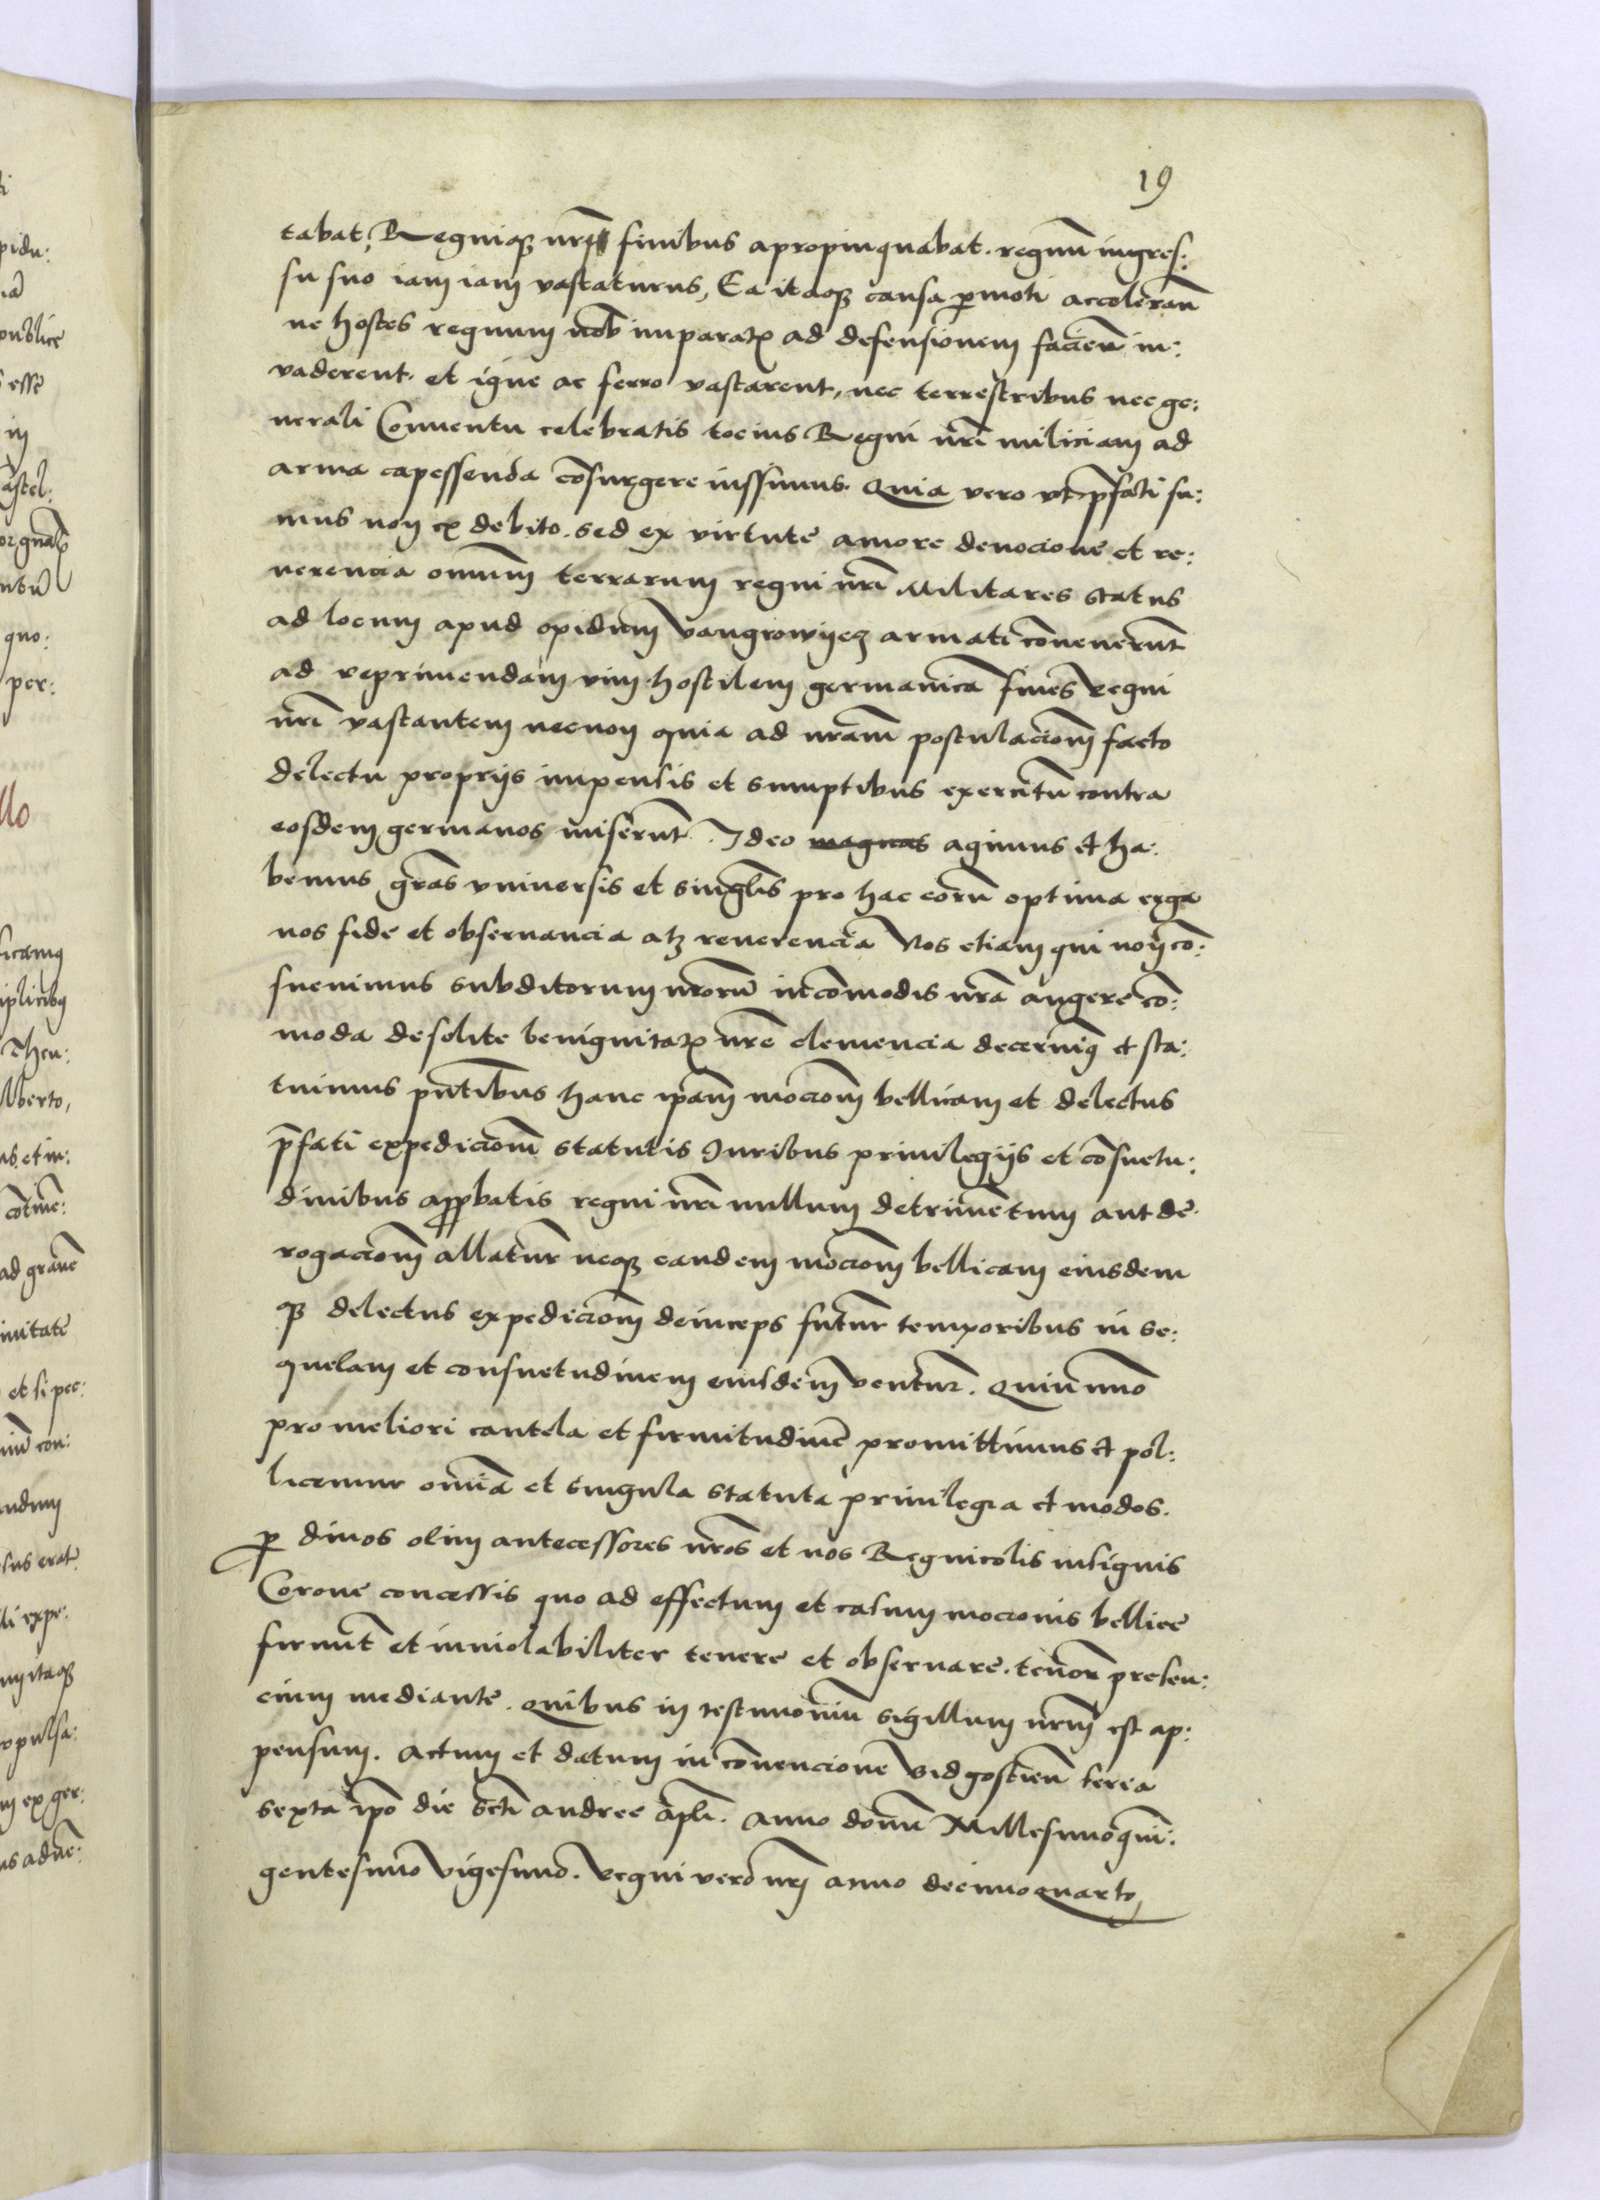 19
tabat, Regniqꝫ nrĩ finibus apropinquabat. regnũ ingres:
su suo iam iam vastaturus, Ea itaqꝫ causa ꝑmoti acceleran̄
ne hostes regnum nob̄ imparatꝭ ad defensionem facien̄ in:
vaderent. et igne ac ferro vastarent, nec terrestribus nec ge:
nerali Conuentu celebratis tocius Regni nr̄i miliciam ad
arma capessenda cōsurgere iussimus. Quia vero vt p̄fati su:
mus non ex debito. sed ex virtute amore deuocione et re:
uerencia omniū terrarum regni nr̄i Militares status
ad locum apud opidum Vangrowyecz armati cōuenerunt
ad reprimendam vim hostilem germanica fines regni
nr̄i vastantem necnon quia ad nr̄am postulacionē facto
delectu proprijs impensis et sumptibus exercitū contra
eosdem germanos miserunt. Ideo magnas agimus et ha:
bemus gr̄as vniuersis et singl̄is pro hac eorū optima erga
nos fide et obseruancia atꝫ reuerencia Nos etiam qui non cō:
sueuimus subditorum nr̄orū incōmodis nr̄a augere cō:
moda de solite benignitatꝭ nr̄e clemencia decernimꝰ et sta:
tuimus pn̄tibus hanc ip̄am mocionē bellicam et delectus
p̄fati expedicionē statutis Iuribus priuilegijs et cōsuetu:
dinibus app̄batis regni nr̄i nullum detrimētum aut de
rogacionē allatur̄ neqꝫ eandem mocionē bellicam eiusdem
qꝫ delectus expedicionē deinceps futur̄ temporibus in se:
quelam et consuetudinem eiusdem ventur̄. Quinimmo
pro meliori cautela et firmitudine promittimus et pol:
licemur omnia et singula statuta priuilegia et modos.
ꝑ diuos olim antecessores nr̄os et nos Regnicolis insignis
Corone concessis quo ad effectum et casum mocionis bellice
firmit̄ et inuiolabiliter tenere et obseruare. tenor̄ presen:
cium mediante. Quibus in testimoniū sigillum nr̄m est ap:
pensum. Actum et datum in cōuencione Bidgostien̄ feria
sexta ip̄o die sc̄ti andree ap̄li. Anno domini Millesimoquin:
gentesimo vigesimo. Regni vero nr̄i anno decimoquarto,